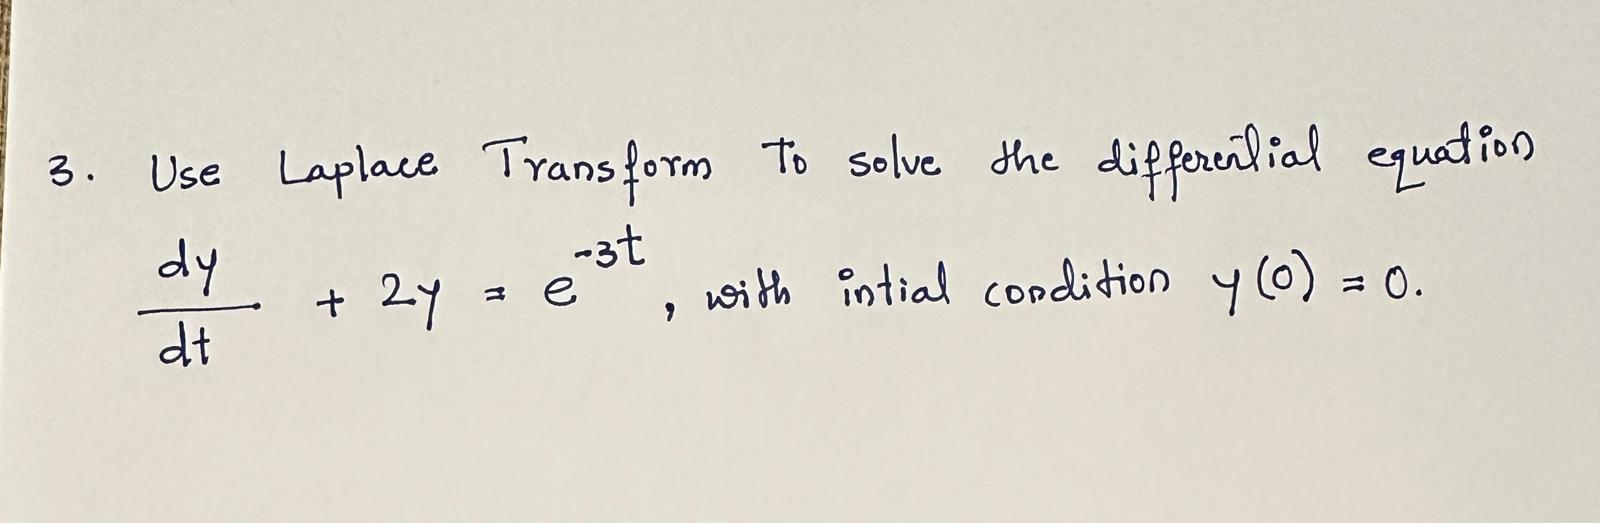 3. Use Laplace Transform To solve the differential equation
dy/dt + 2y = e^-3t, with intial condition y(0) = 0.